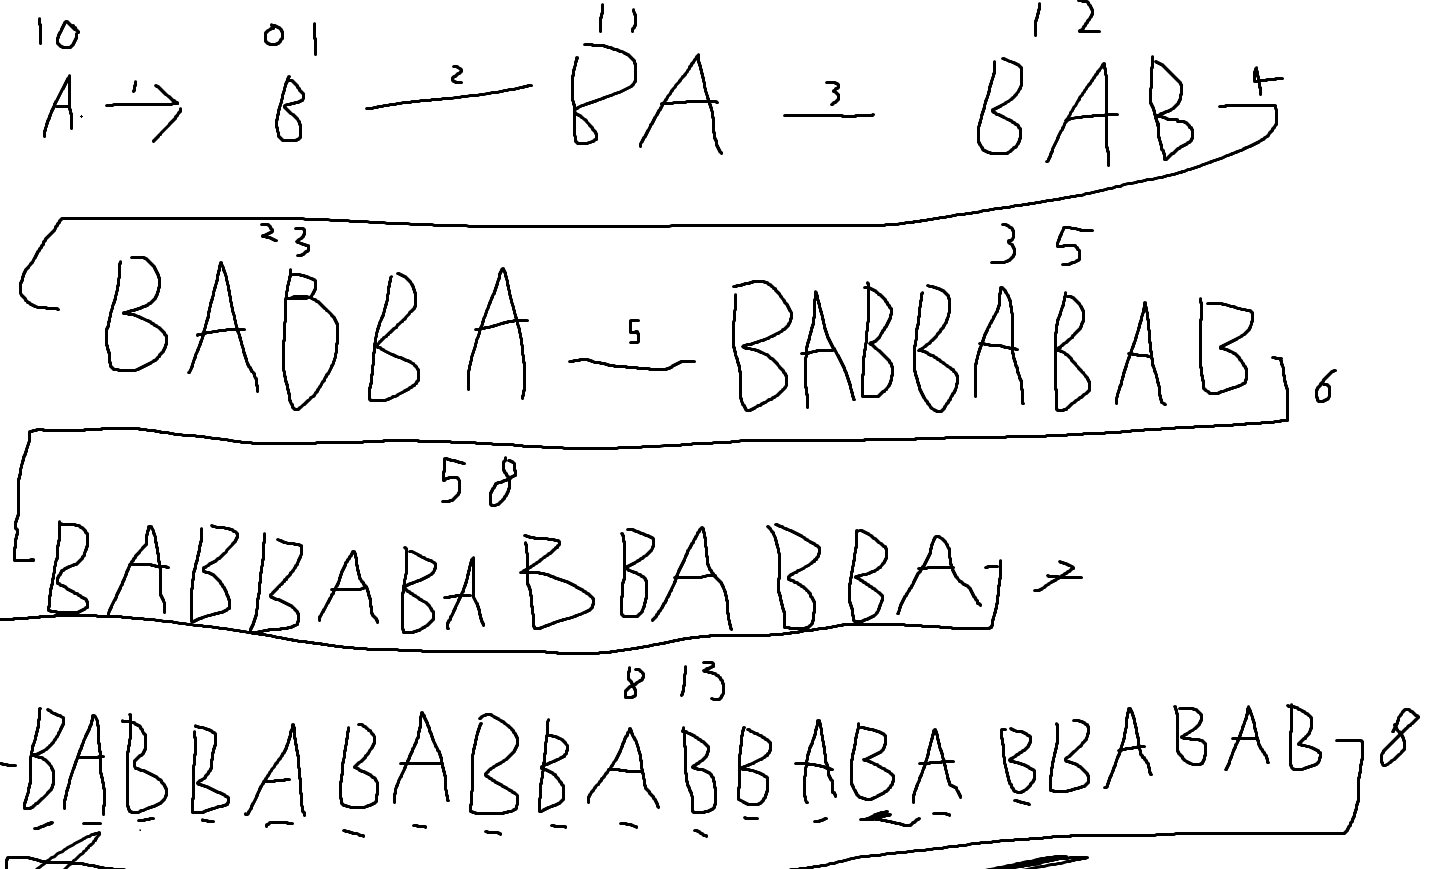 10 01 11 12
A 1 B 2 BA 3 BAB 4
23 35
BABBA 5 BABBABAB 6
58
BABBABABBABBA 7
8 13
BABBABABBABBABABBABAB 8